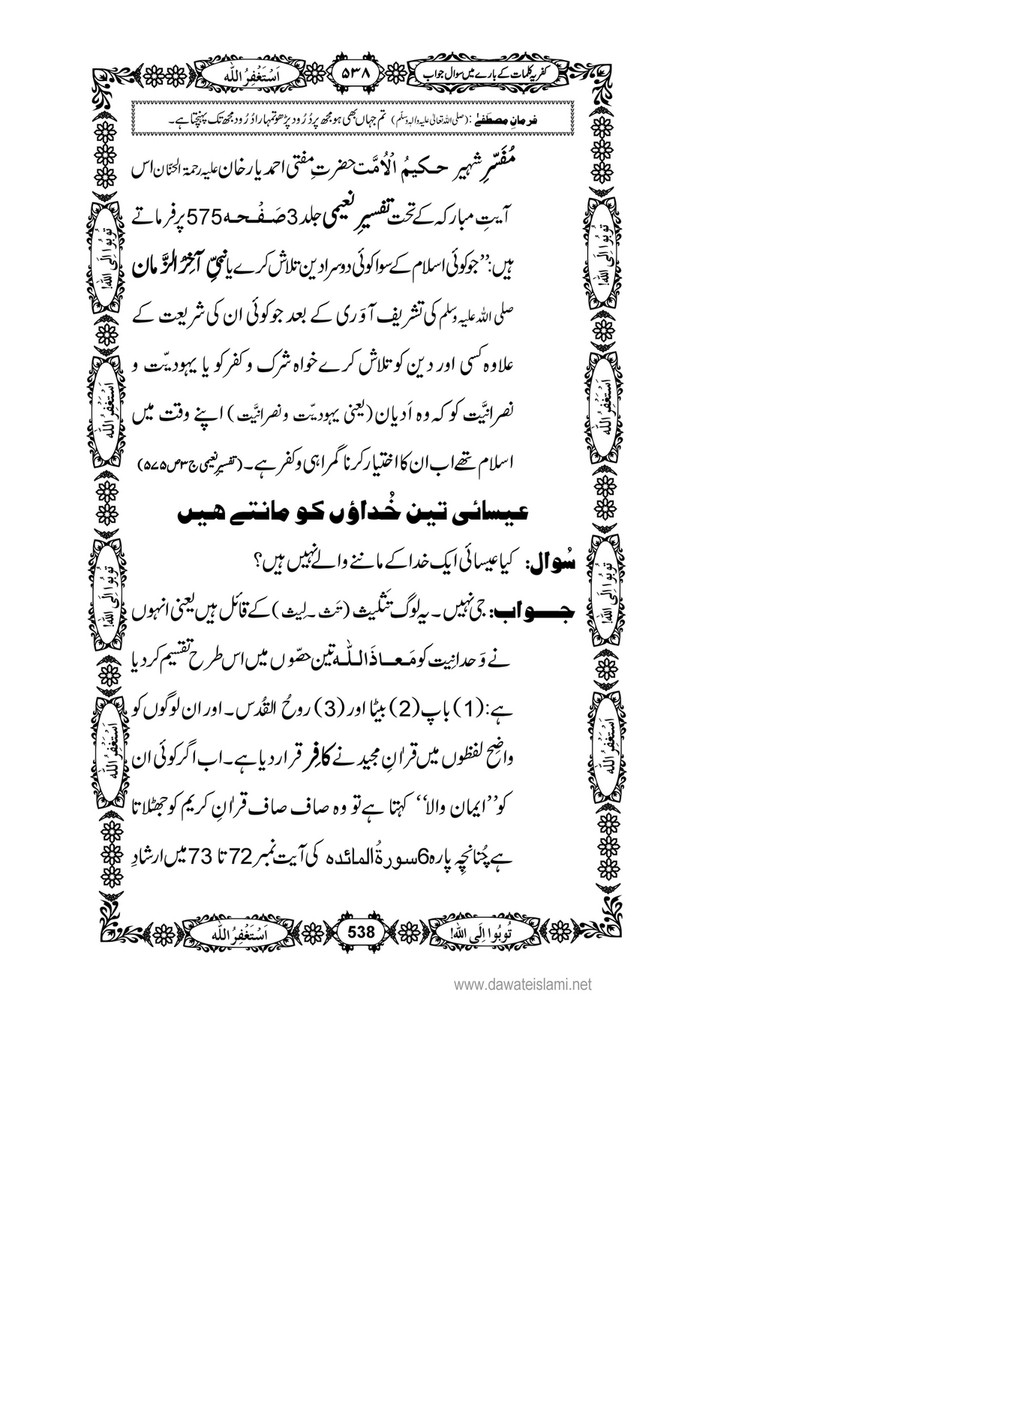 کفریہ کلمات کے بارے میں سوال جواب ۵۳۸ اَسْتَغْفِرُ اللّٰه
فرمانِ مصطفےٰ : (صلی اللہ تعالیٰ علیہ والہٖ وسلّم) تم جہاں بھی ہو مجھ پر دُرُود پڑھو تمہارا دُرُود مجھ تک پہنچتا ہے۔
مُفَسِّرِ شہیر حکیمُ الْاُمَّت حضرتِ مفتی احمد یار خان علیہ رحمۃ الحنّان اس
آیتِ مبارکہ کے تحت تفسیرِ نعیمی جلد 3 صَفْحہ 575 پر فرماتے
ہیں: ’’جو کوئی اسلام کے سوا کوئی دوسرا دین تلاش کرے یا نبیِّ آخِرُ الزَّمان
صلی اللہ علیہ وسلم کی تشریف آوَری کے بعد جو کوئی ان کی شریعت کے
علاوہ کسی اور دین کو تلاش کرے خواہ شرک و کفر کو یا یہودیّت و
نصرانیَّت کو کہ وہ اَدیان (یعنی یہودیّت و نصرانیَّت) اپنے وقت میں
اسلام تھے اب ان کا اختیار کرنا گمراہی و کفر ہے۔ (تفسیرِ نعیمی ج۳ ص۵۷۵)
عیسائی تین خُداؤں کو مانتے ہیں
سُوال: کیا عیسائی ایک خدا کے ماننے والے نہیں ہیں؟
جواب: جی نہیں۔ یہ لوگ تثلیث (تَث۔لِیث) کے قائل ہیں یعنی انہوں
نے وَحدانیت کو مَعاذَاللّٰه تین حصّوں میں اس طرح تقسیم کر دیا
ہے: (1) باپ (2) بیٹا اور (3) روحُ القُدس۔ اور ان لوگوں کو
واضح لفظوں میں قراٰنِ مجید نے کافِر قرار دیا ہے۔ اب اگر کوئی ان
کو ’’ایمان والا‘‘ کہتا ہے تو وہ صاف صاف قراٰنِ کریم کو جھٹلاتا
ہے چُنانچِہ پارہ 6 سورۃُ المائدہ کی آیت نمبر 72 تا 73 میں ارشادِ
تُوبُوا اِلَى اللّٰه! 538 اَسْتَغْفِرُ اللّٰه
تُوبُوا اِلَى اللّٰه!
اَسْتَغْفِرُ اللّٰه
تُوبُوا اِلَى اللّٰه!
اَسْتَغْفِرُ اللّٰه
تُوبُوا اِلَى اللّٰه!
اَسْتَغْفِرُ اللّٰه
تُوبُوا اِلَى اللّٰه!
اَسْتَغْفِرُ اللّٰه
www.dawateislami.net